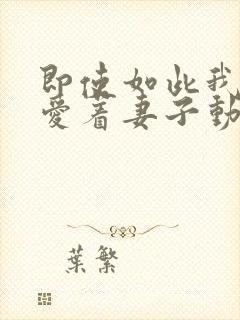 即使如此我
愛着妻子動
葉繁